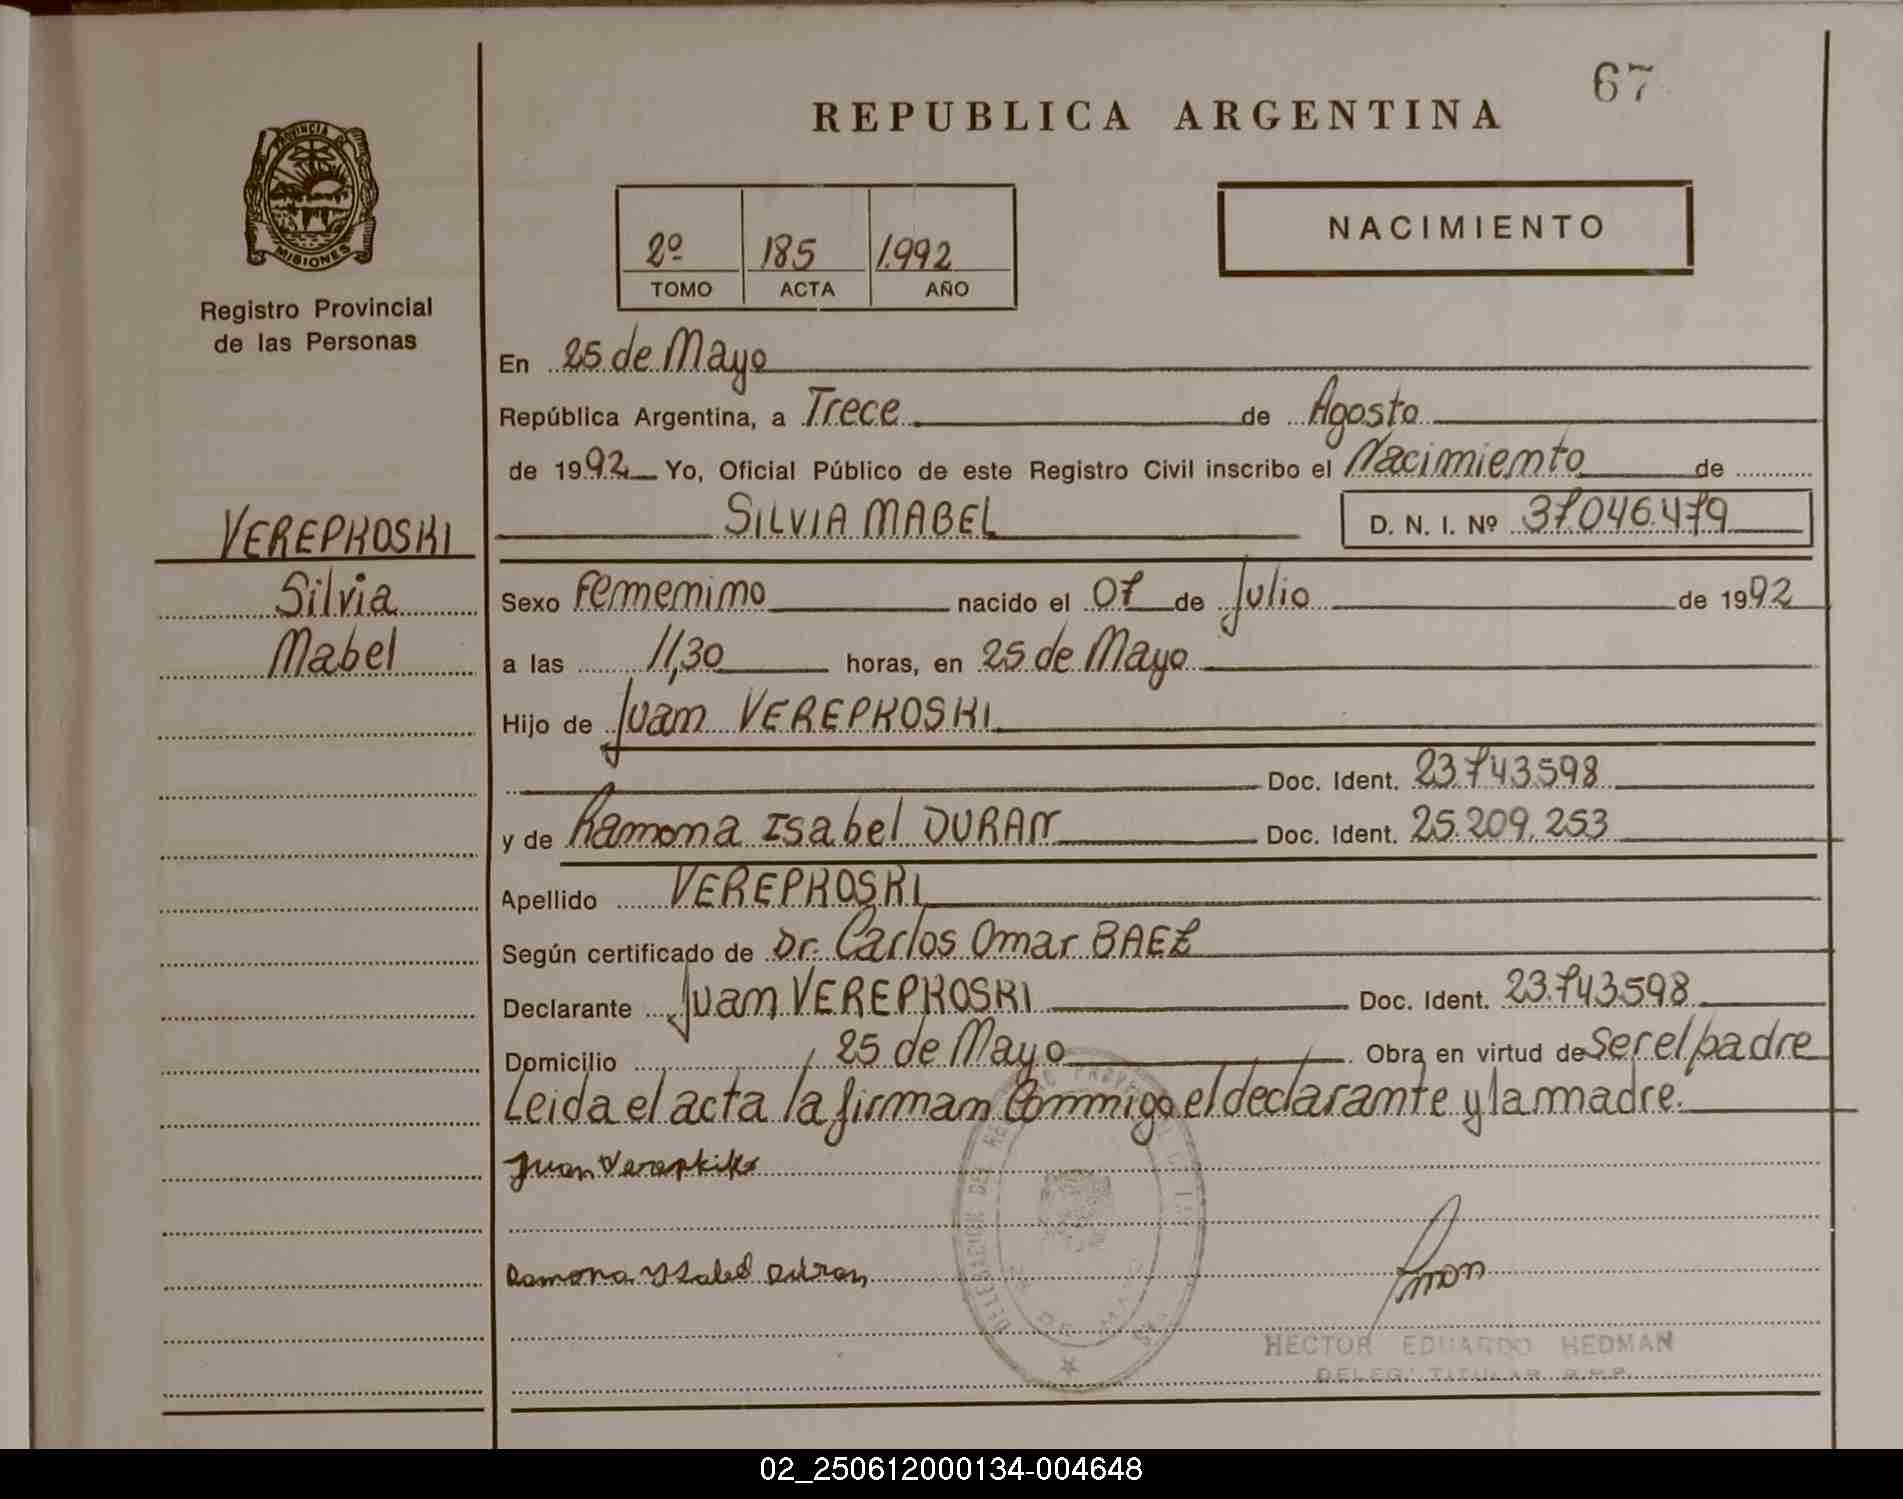 67
REPUBLICA ARGENTINA
PROVINCIA DE
MISIONES
Registro Provincial
de las Personas
2º 185 1.992
TOMO ACTA AÑO
NACIMIENTO
En 25 de Mayo
República Argentina, a Trece de Agosto
de 1992 Yo, Oficial Público de este Registro Civil inscribo el Nacimiento de
SILVIA MABEL D. N. I. Nº 37.046.479
VEREPKOSKI
Silvia
Mabel
Sexo Femenino nacido el 07 de Julio de 1992
a las 11,30 horas, en 25 de Mayo
Hijo de Juan VEREPKOSKI
Doc. Ident. 23.743.598
y de Ramona Isabel DURAN Doc. Ident. 25.209.253
Apellido VEREPKOSKI
Según certificado de Dr. Carlos Omar BAEZ
Declarante Juan VEREPKOSKI Doc. Ident. 23.743.598
Domicilio 25 de Mayo Obra en virtud de Ser el padre
Leida el acta la firman Conmigo el declarante y la madre.
Juan
Ramona Ysabel Duran
HECTOR EDUARDO HEDMAN
DELEG. TITULAR R.P.P.
02_250612000134-004648